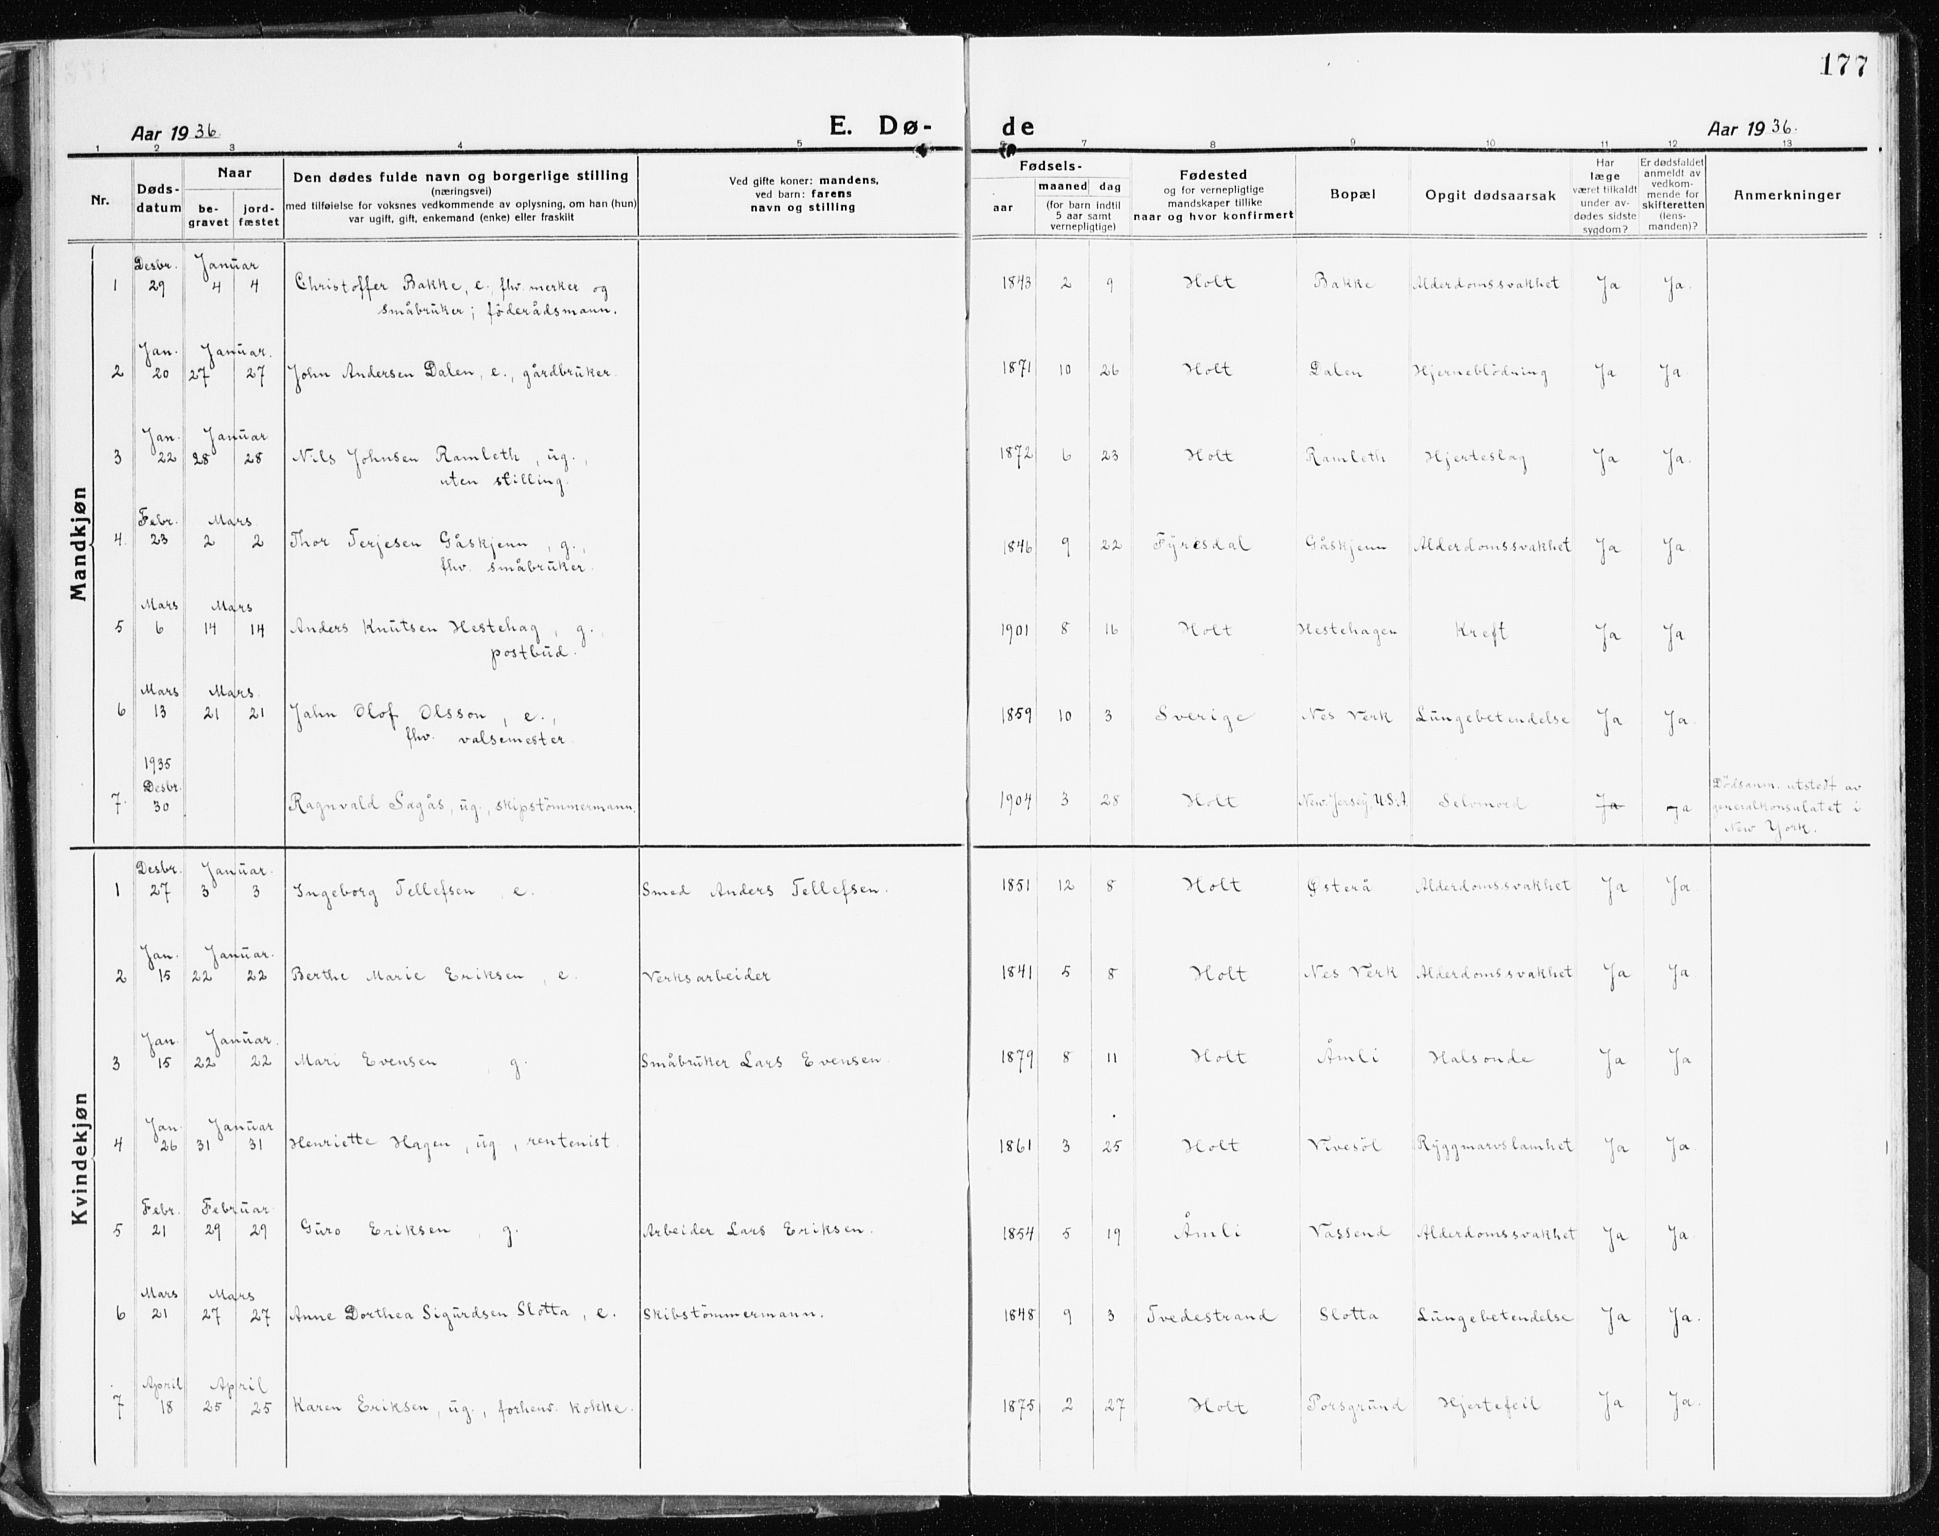 177
Aar 1936.
E. Dø-
de
Aar 1936.
1 2 3 4 5 6 7 8 9 10 11 12 13
Nr.
Døds-
datum
Naar
be-
gravet
jord-
fæstet
Den dødes fulde navn og borgerlige stilling
(næringsvei)
med tilføielse for voksnes vedkommende av oplysning, om han (hun)
var ugift, gift, enkemand (enke) eller fraskilt
Ved gifte koner: mandens,
ved barn: farens
navn og stilling
Fødsels-
aar
maaned dag
(for barn indtil
5 aar samt
vernepligtige)
Fødested
og for vernepligtige
mandskaper tillike
naar og hvor konfirmert
Bopæl
Opgit dødsaarsak
Har
læge
været tilkaldt
under av-
dødes sidste
sygdom?
Er dødsfaldet
anmeldt av
vedkom-
mende for
skifteretten
(lens-
manden)?
Anmerkninger
Mandkjøn
Desbr. Januar
1 29 4 4 Christoffer Bakke, e., fhv. merker og 1843 2 9 Holt Bakke Alderdomssvakhet Ja Ja.
småbruker; föderådsmann.
Jan. Januar.
2 20 27 27 John Andersen Dalen, e., gårdbruker. 1871 10 26 Holt Dalen Hjerneblödning Ja Ja.
Jan. Januar
3 22 28 28 Nils Johnsen Ramleth, ug., 1872 6 23 Holt Ramleth Hjerteslag Ja Ja.
uten stilling.
Febr. Mars
4. 23 2 2 Thor Terjesen Gåskjenn, g., 1846 9 22 Fyresdal Gåskjenn Alderdomssvakhet Ja Ja.
fhv. småbruker.
Mars Mars
5 6 14 14 Anders Knutsen Hestehag, g., 1901 8 16 Holt Hestehagen Kreft Ja Ja
postbud.
Mars Mars.
6 13 21 21 Jahn Olof Olsson, e., 1859 10 3 Sverige Nes Verk Lungebetendelse Ja Ja.
fhv. valsemester.
1935
Desbr.
7. 30 Ragnvald Sagås, ug., skipstömmermann. 1904 3 28 Holt New. Jersey. U.S.A. Selvmord Ja Ja Dödsanm. utstedt av
generalkonsulatet i
New York.
Kvindekjøn
Desbr. Januar.
1 27 3 3 Ingeborg Tellefsen, e. Smed Anders Tellefsen. 1851 12 8 Holt Østerå Alderdomssvakhet Ja Ja.
Jan. Januar.
2 15 22 22 Berthe Marie Eriksen, e. Verksarbeider 1841 5 8 Holt Nes Verk Alderdomssvakhet Ja Ja.
Jan. Januar.
3 15 22 22 Mari Evensen, g. Småbruker Lars Evensen. 1879 8 11 Holt Åmli Halsonde Ja Ja
Jan. Januar
4 26 31 31 Henriette Hagen, ug., rentenist. 1861 3 25 Holt Vivesöl Ryggmarvslamhet Ja Ja.
Febr. Februar.
5 21 29 29 Guro Eriksen, g. Arbeider Lars Eriksen. 1854 5 19 Åmli Vassend Alderdomssvakhet Ja Ja.
Mars Mars
6 21 27 27 Anne Dorthea Sigurdsen Slotta, e. Skibstömmermann. 1848 9 3 Tvedestrand Slotta Lungebetendelse Ja Ja.
April April
7 18 25 25 Karen Eriksen, ug., forhenv. kokke. 1875 2 27 Holt Porsgrund Hjertefeil Ja Ja.